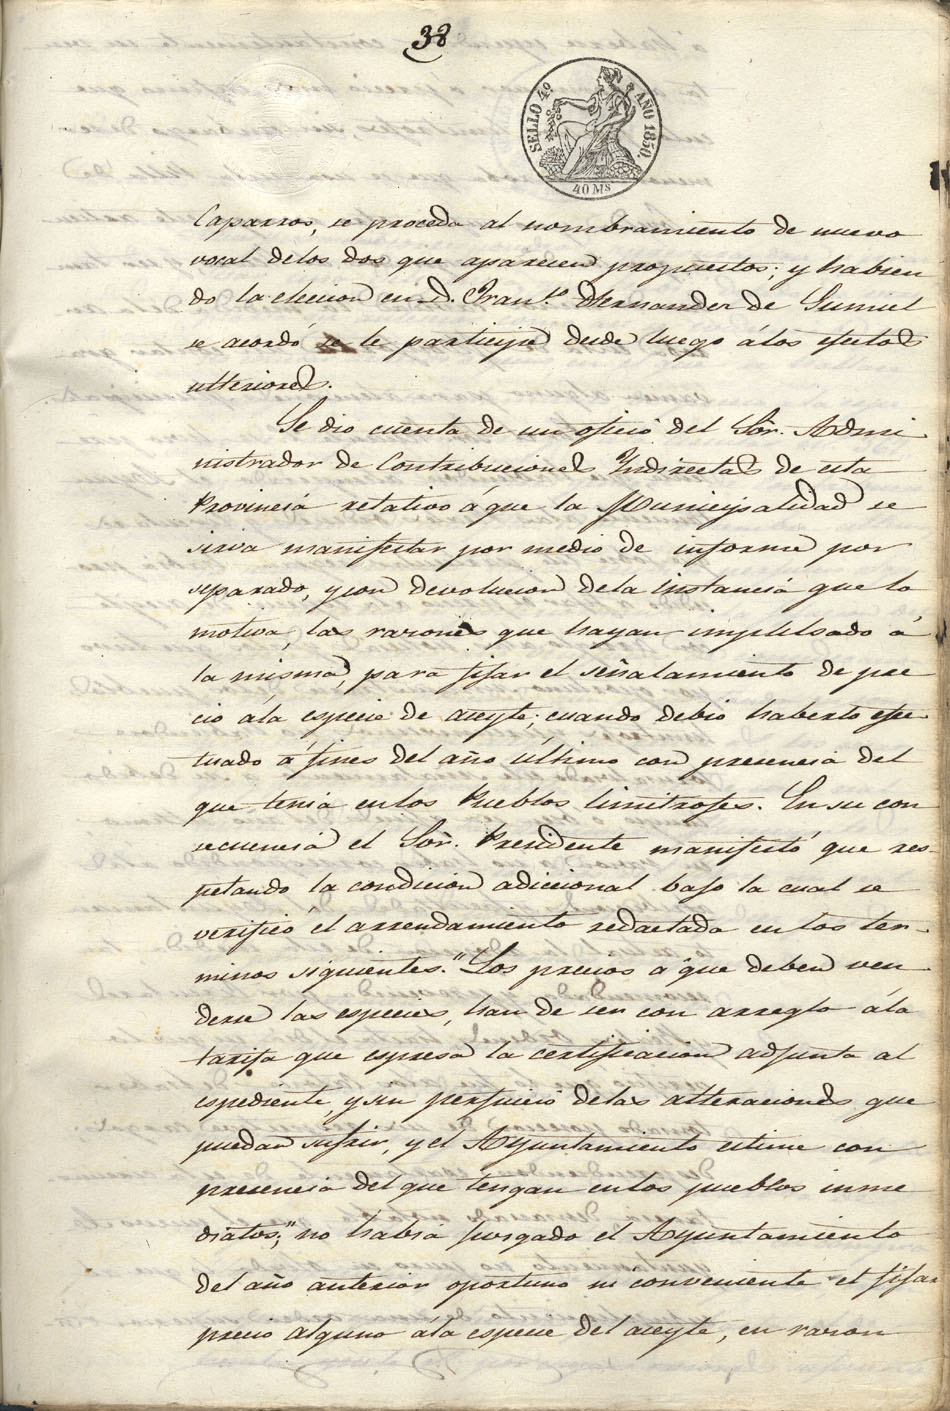 38
SELLO 4º AÑO 1850.
40 Ms
Caparros, se proceda al nombramiento de nuevo
vocal delos dos que aparecen propuestos; y habien
do la eleccion en D. Fran.co Hernandez de Gumiel
se acordó se le participe desde luego álos efectos
ulteriores.
Se dio cuenta de un oficio del Sór. Admi
nistrador de Contribuciones Yndirectas de esta
Provincia relativo á que la Municipalidad se
sirva manifestar por medio de informe por
separado, y con devolucion dela instancia que lo
motiva, las razones que hayan impulsado á
la misma, para fijar el señalamiento de pre
cio ála especie de aceyte; cuando debio haberlo efec
tuado á fines del año último con presencia del
que tenia en los Pueblos limitrofes. En su con
secuencia el Sór. Presidente manifestó que res-
petando la condicion adiccional bajo la cual se
verificó el arrendamiento redactada en los ter-
minos siguientes. "Los precios a que deben ven
derse las especies, han de ser con arreglo ála
tarifa que espresa la certificacion adjunta al
espediente, y sin perjuicio delas alteraciones que
puedan sufrir, y el Ayuntamiento estime con
presencia del que tengan en los pueblos inme
diatos;" no habia juzgado el Ayuntamiento
del año anterior oportuno ni conveniente el fijar
precio alguno ála especie del aceyte, en razon